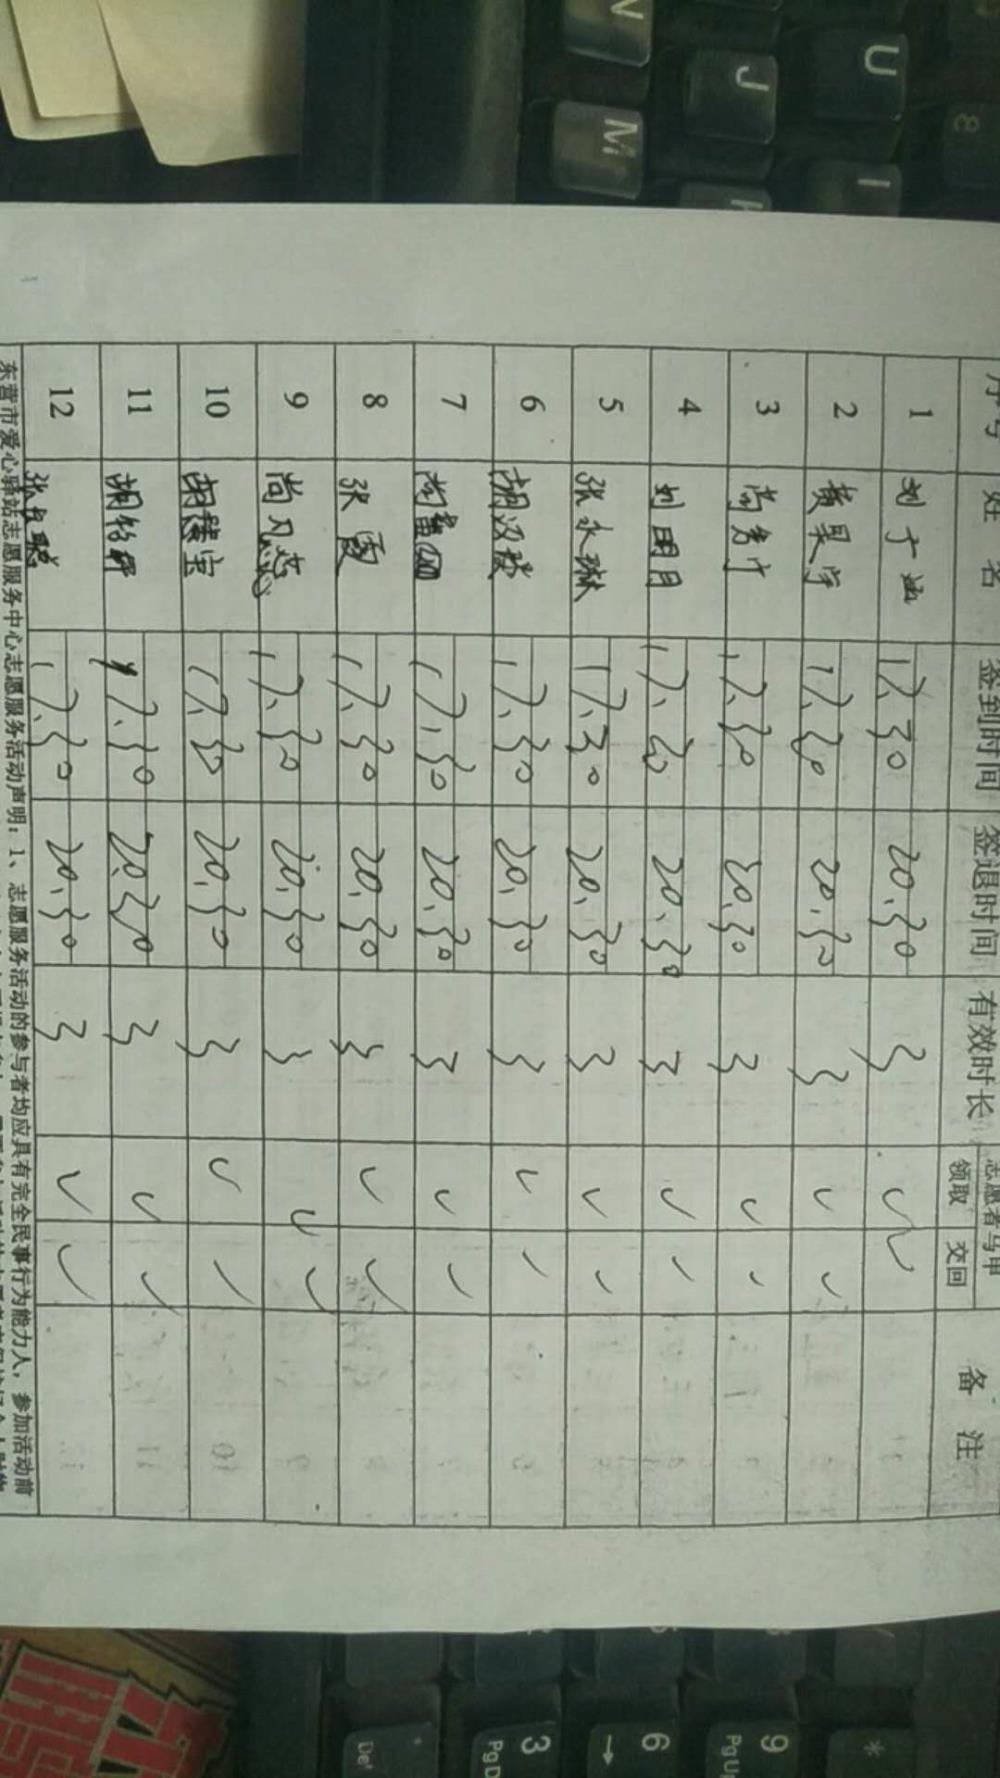 序号 姓 名 签到时间 签退时间 有效时长 志愿者马甲 备 注
领取 交回
1 刘子涵 17.30 20.30 3 ✓ ✓
2 黄昊宇 17.30 20.30 3 ✓ ✓
3 尚 17.30 20.30 3 ✓ ✓
4 刘明月 17.30 20.30 3 ✓ ✓
5 张永琳 17.30 20.30 3 ✓ ✓
6 胡汉 17.30 20.30 3 ✓ ✓
7 尚 17.30 20.30 3 ✓ ✓
8 张霞 17.30 20.30 3 ✓ ✓
9 尚凡 17.30 20.30 3 ✓ ✓
10 胡 宝 17.30 20.30 3 ✓ ✓
11 胡 17.30 20.30 3 ✓ ✓
12 张 聪 17.30 20.30 3 ✓ ✓
东营市爱心驿站志愿服务中心志愿服务活动声明：1、志愿服务活动的参与者均应具有完全民事行为能力人，参加活动前
N
U
J
M
I
8
9
PgUp
6
→
3
PgD
Del
*